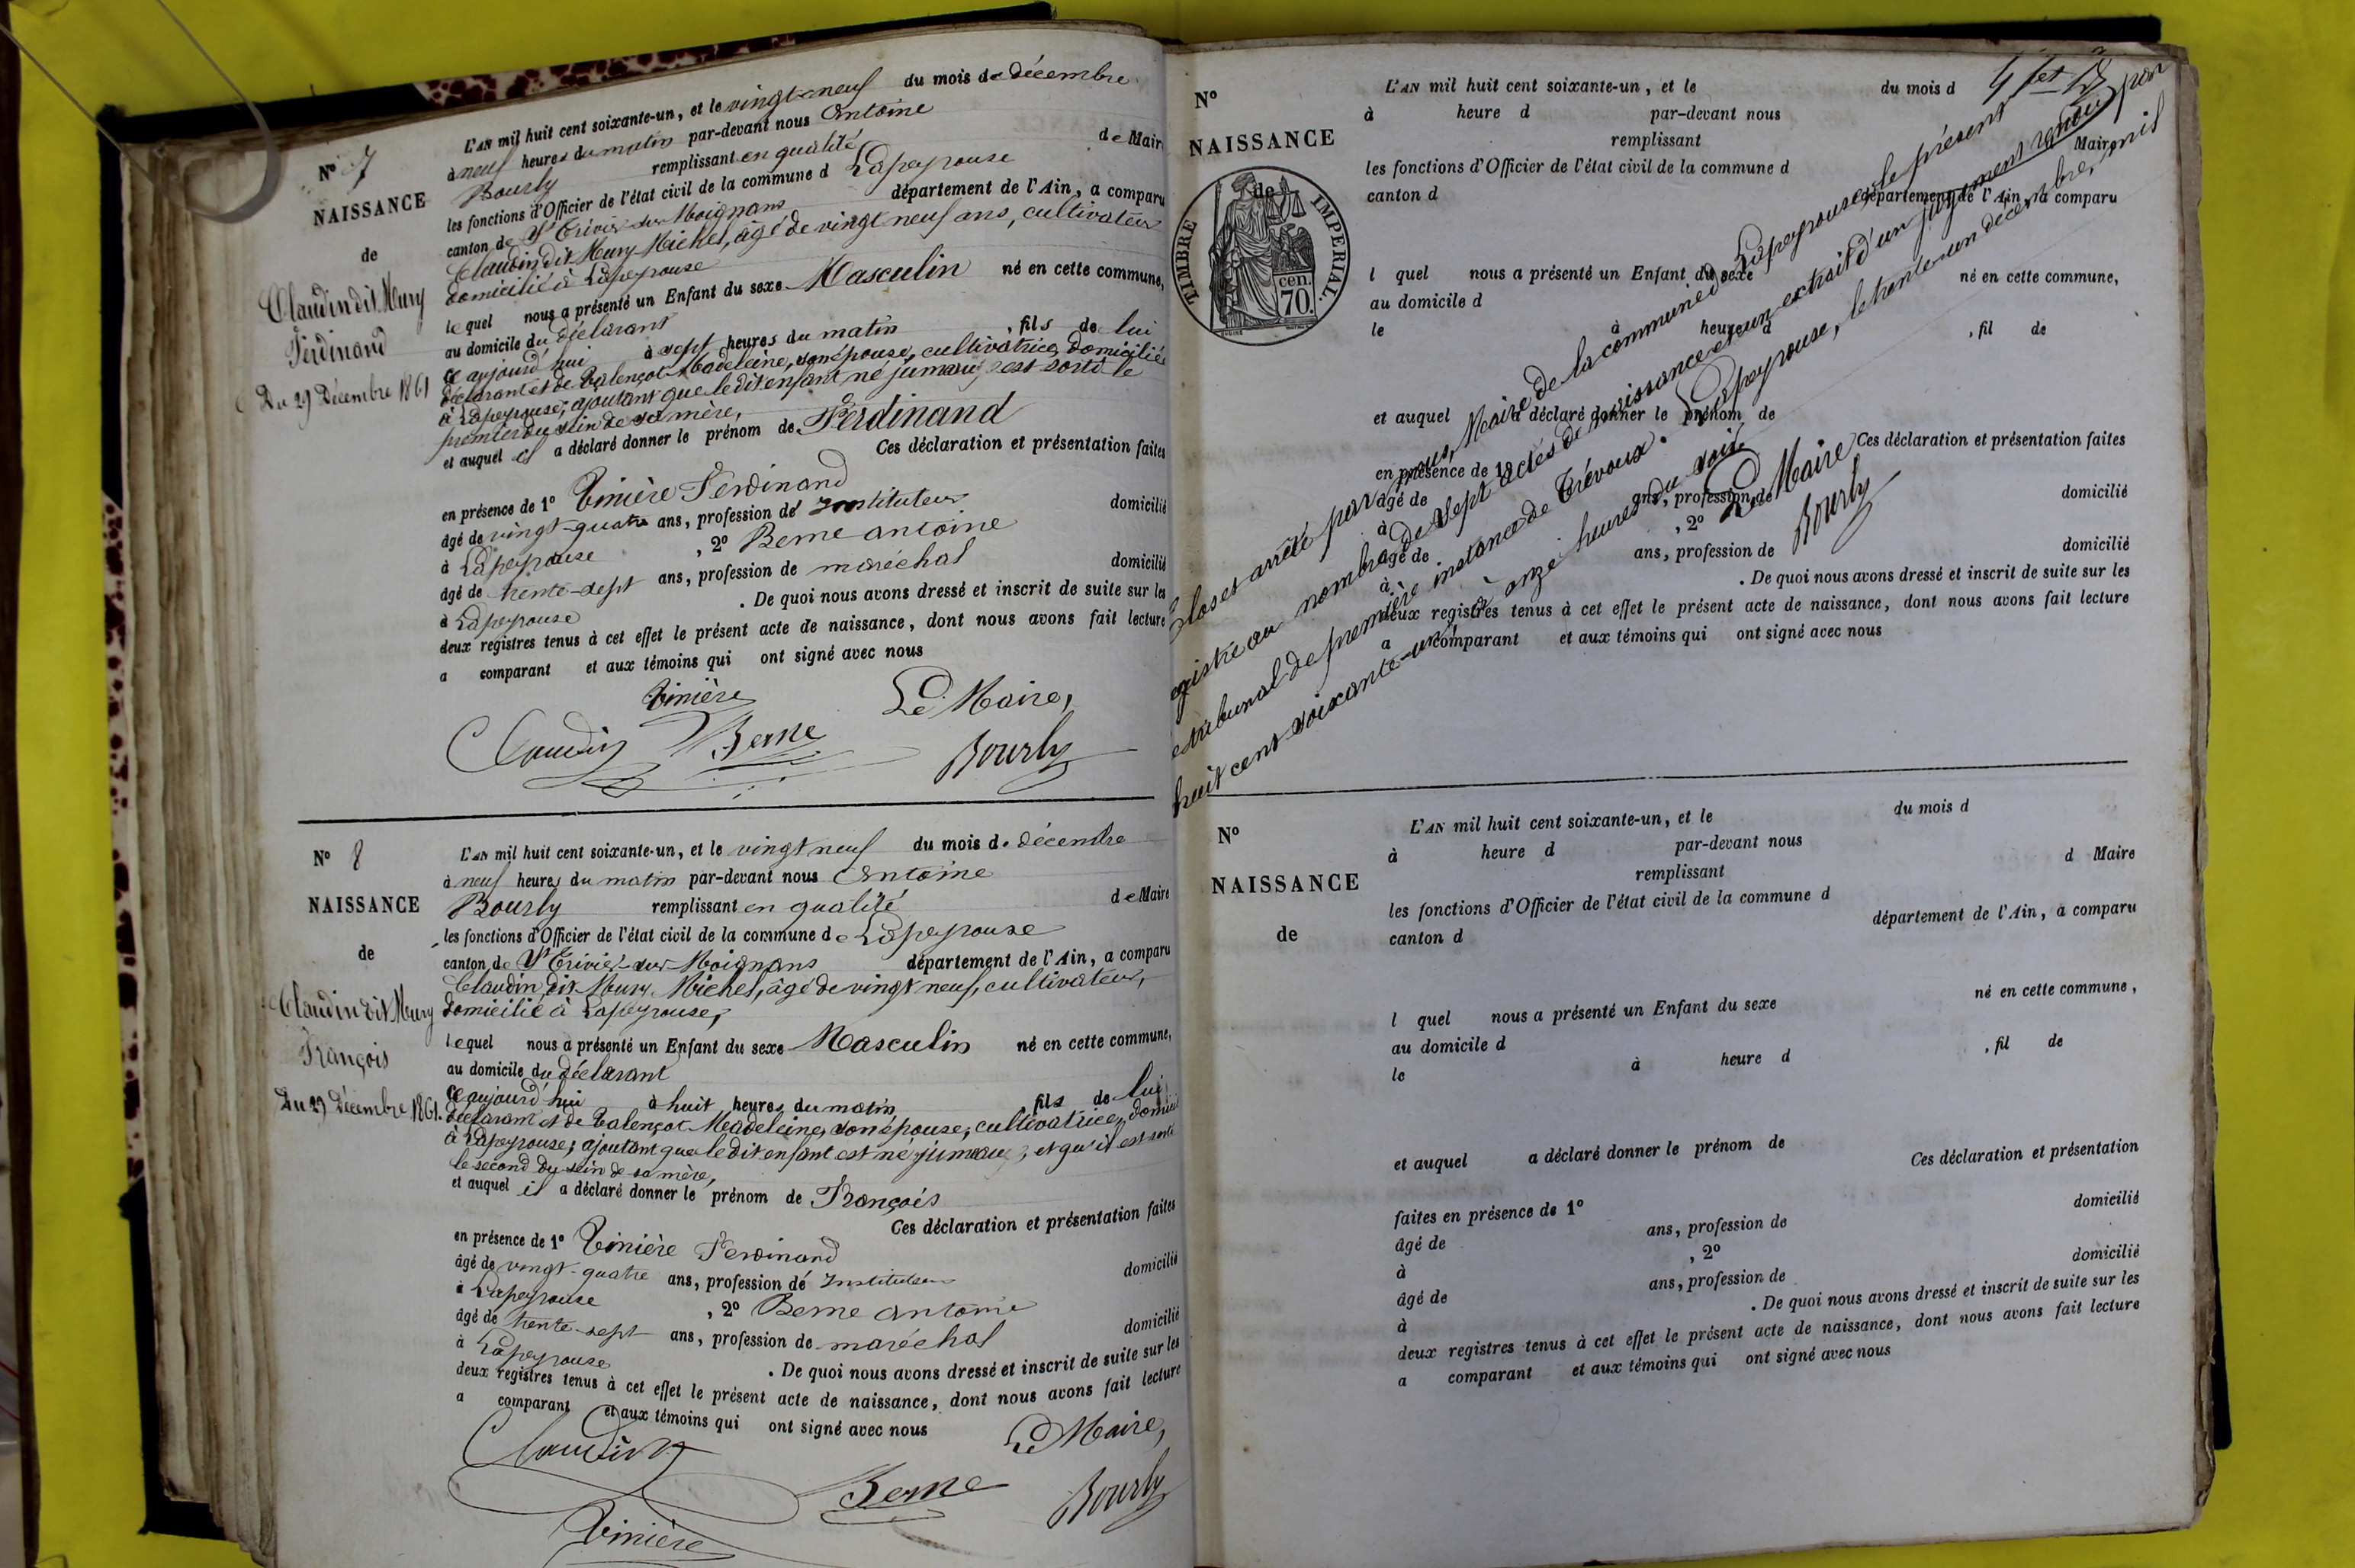 N° 7
NAISSANCE
de
Claudin dit Mury
Ferdinand
Du 29 Décembre 1861
L'AN mil huit cent soixante-un, et le vingt neuf du mois de décembre
à neuf heures du matin par-devant nous Antoine
Bourly remplissant en qualité de Maire
les fonctions d'Officier de l'état civil de la commune d Lapeyrouse
canton de St Trivier sur Moignans département de l'Ain, a comparu
Claudin dit Mury Michel, âgé de vingt neuf ans, cultivateur
domicilié à Lapeyrouse
lequel nous a présenté un Enfant du sexe Masculin né en cette commune,
au domicile du déclarant
ce aujourd'hui à sept heures du matin, fils de lui
déclarant et de Valençot Madeleine, son épouse, cultivatrice, domiciliée
à Lapeyrouse; ajoutant que le dit enfant né jumeau, est sorti le
premier du sein de sa mère,
et auquel il a déclaré donner le prénom de Ferdinand
Ces déclaration et présentation faites
en présence de 1° Vinière Ferdinand
âgé de vingt-quatre ans, profession de Instituteur domicilié
à Lapeyrouse, 2° Berne antoine
âgé de trente-sept ans, profession de maréchal domicilié
à Lapeyrouse. De quoi nous avons dressé et inscrit de suite sur les
deux registres tenus à cet effet le présent acte de naissance, dont nous avons fait lecture
a comparant et aux témoins qui ont signé avec nous
Vinière Le Maire,
Claudin Berne Bourly
N° 8
NAISSANCE
de
Claudin dit Mury
François
Du 29 Décembre 1861.
L'AN mil huit cent soixante-un, et le vingt neuf du mois de décembre
à neuf heures du matin par-devant nous Antoine
Bourly remplissant en qualité de Maire
les fonctions d'Officier de l'état civil de la commune de Lapeyrouse
canton de St Trivier-sur-Moignans département de l'Ain, a comparu
Claudin dit Mury Michel, âgé de vingt neuf, cultivateur,
domicilié à Lapeyrouse,
lequel nous a présenté un Enfant du sexe Masculin né en cette commune,
au domicile du déclarant
ce aujourd'hui à huit heures du matin, fils de lui
déclarant et de Valençot Madeleine, son épouse, cultivatrice, domicil
à Lapeyrouse; ajoutant que le dit enfant est né jumeau, et qu'il est sorti
le second du sein de sa mère,
et auquel il a déclaré donner le prénom de François
Ces déclaration et présentation faites
en présence de 1° Vinière Ferdinand
âgé de vingt-quatre ans, profession de Instituteur domicilié
à Lapeyrouse, 2° Berne antoine
âgé de trente-sept ans, profession de maréchal domicilié
à Lapeyrouse. De quoi nous avons dressé et inscrit de suite sur les
deux registres tenus à cet effet le présent acte de naissance, dont nous avons fait lecture
a comparant et aux témoins qui ont signé avec nous
Claudin Le Maire,
Berne Bourly
Vinière
N°
NAISSANCE
de
TIMBRE IMPERIAL.
cen.
70.
L'AN mil huit cent soixante-un, et le du mois d
à heure d par-devant nous
remplissant Maire
les fonctions d'Officier de l'état civil de la commune d
canton d département de l'Ain, a comparu
l quel nous a présenté un Enfant du sexe né en cette commune,
au domicile d
le à heure d , fil de
et auquel a déclaré donner le prénom de
Ces déclaration et présentation faites
en présence de 1°
âgé de ans, profession de domicilié
à , 2°
âgé de ans, profession de domicilié
à . De quoi nous avons dressé et inscrit de suite sur les
deux registres tenus à cet effet le présent acte de naissance, dont nous avons fait lecture
a comparant et aux témoins qui ont signé avec nous
Clos et arrêté par nous, Maire de la commune de Lapeyrouse, le présent
egistre au nombre de sept actes de naissance et un extrait d'un jugement rendu par
tribunal de première instance de Trévoux. Lapeyrouse, le trente-un décembre, mil
huit cent soixante-un à onze heures du soir
Le Maire
Bourly
N°
NAISSANCE
de
L'AN mil huit cent soixante-un, et le du mois d
à heure d par-devant nous
remplissant d Maire
les fonctions d'Officier de l'état civil de la commune d
canton d département de l'Ain, a comparu
l quel nous a présenté un Enfant du sexe né en cette commune,
au domicile d
le à heure d , fil de
et auquel a déclaré donner le prénom de
Ces déclaration et présentation
faites en présence de 1°
âgé de ans, profession de domicilié
à , 2°
âgé de ans, profession de domicilié
à . De quoi nous avons dressé et inscrit de suite sur les
deux registres tenus à cet effet le présent acte de naissance, dont nous avons fait lecture
a comparant et aux témoins qui ont signé avec nous